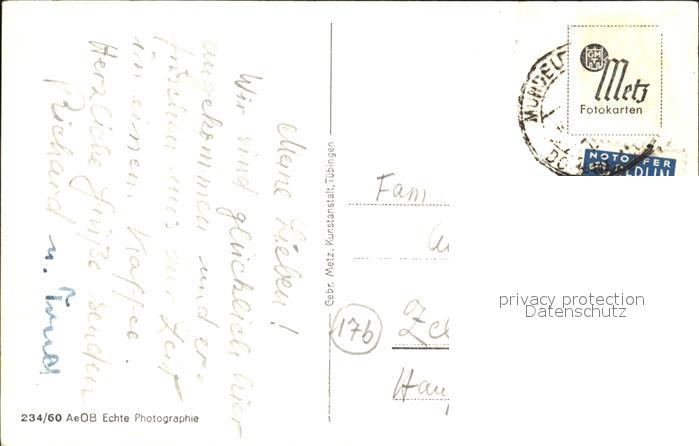 Meine Lieben!
Wir sind glücklich hier
angekommen und er=
frischen uns zur Zeit
in einem Kaffee.
Herzliche Grüße senden
Richard u.
Gebr. Metz, Kunstanstalt, Tübingen
GMT
Metz
Fotokarten
NOTOPFER
BERLIN
Fam
17b
privacy protection
Datenschutz
234/60 AeOB Echte Photographie